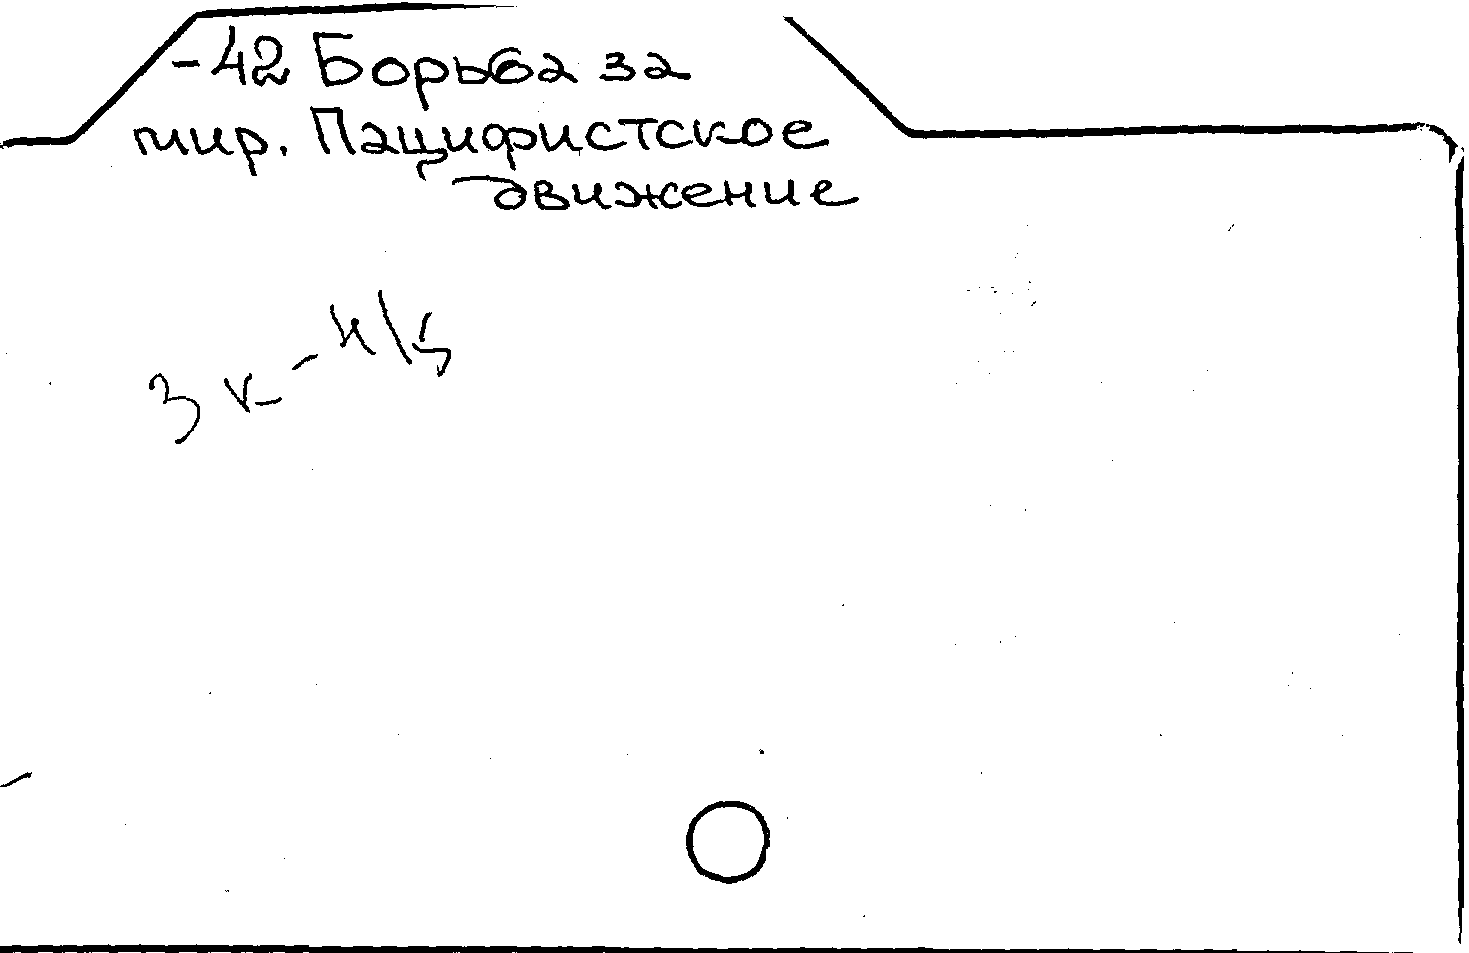 -42 Борьба за
мир. Пацифистское
движение
3 к - н/ц